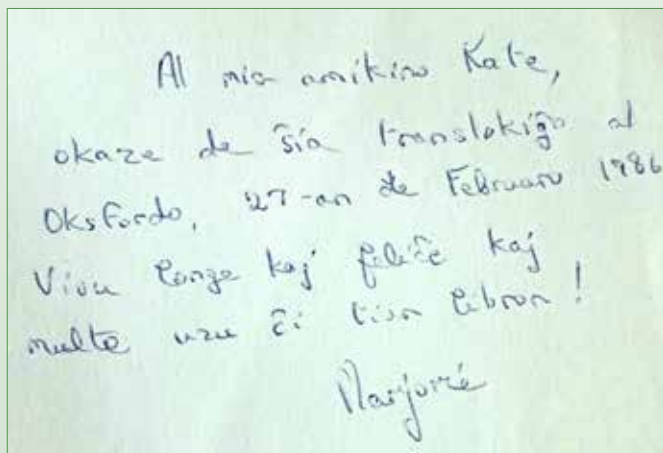 Al mia amikino Kate,
okaze de ŝia translokiĝo al
Oksfordo, 27-an de Februaro 1986
Vivu longe kaj feliĉe kaj
multe uzu ĉi tiun libron!
Marjorie